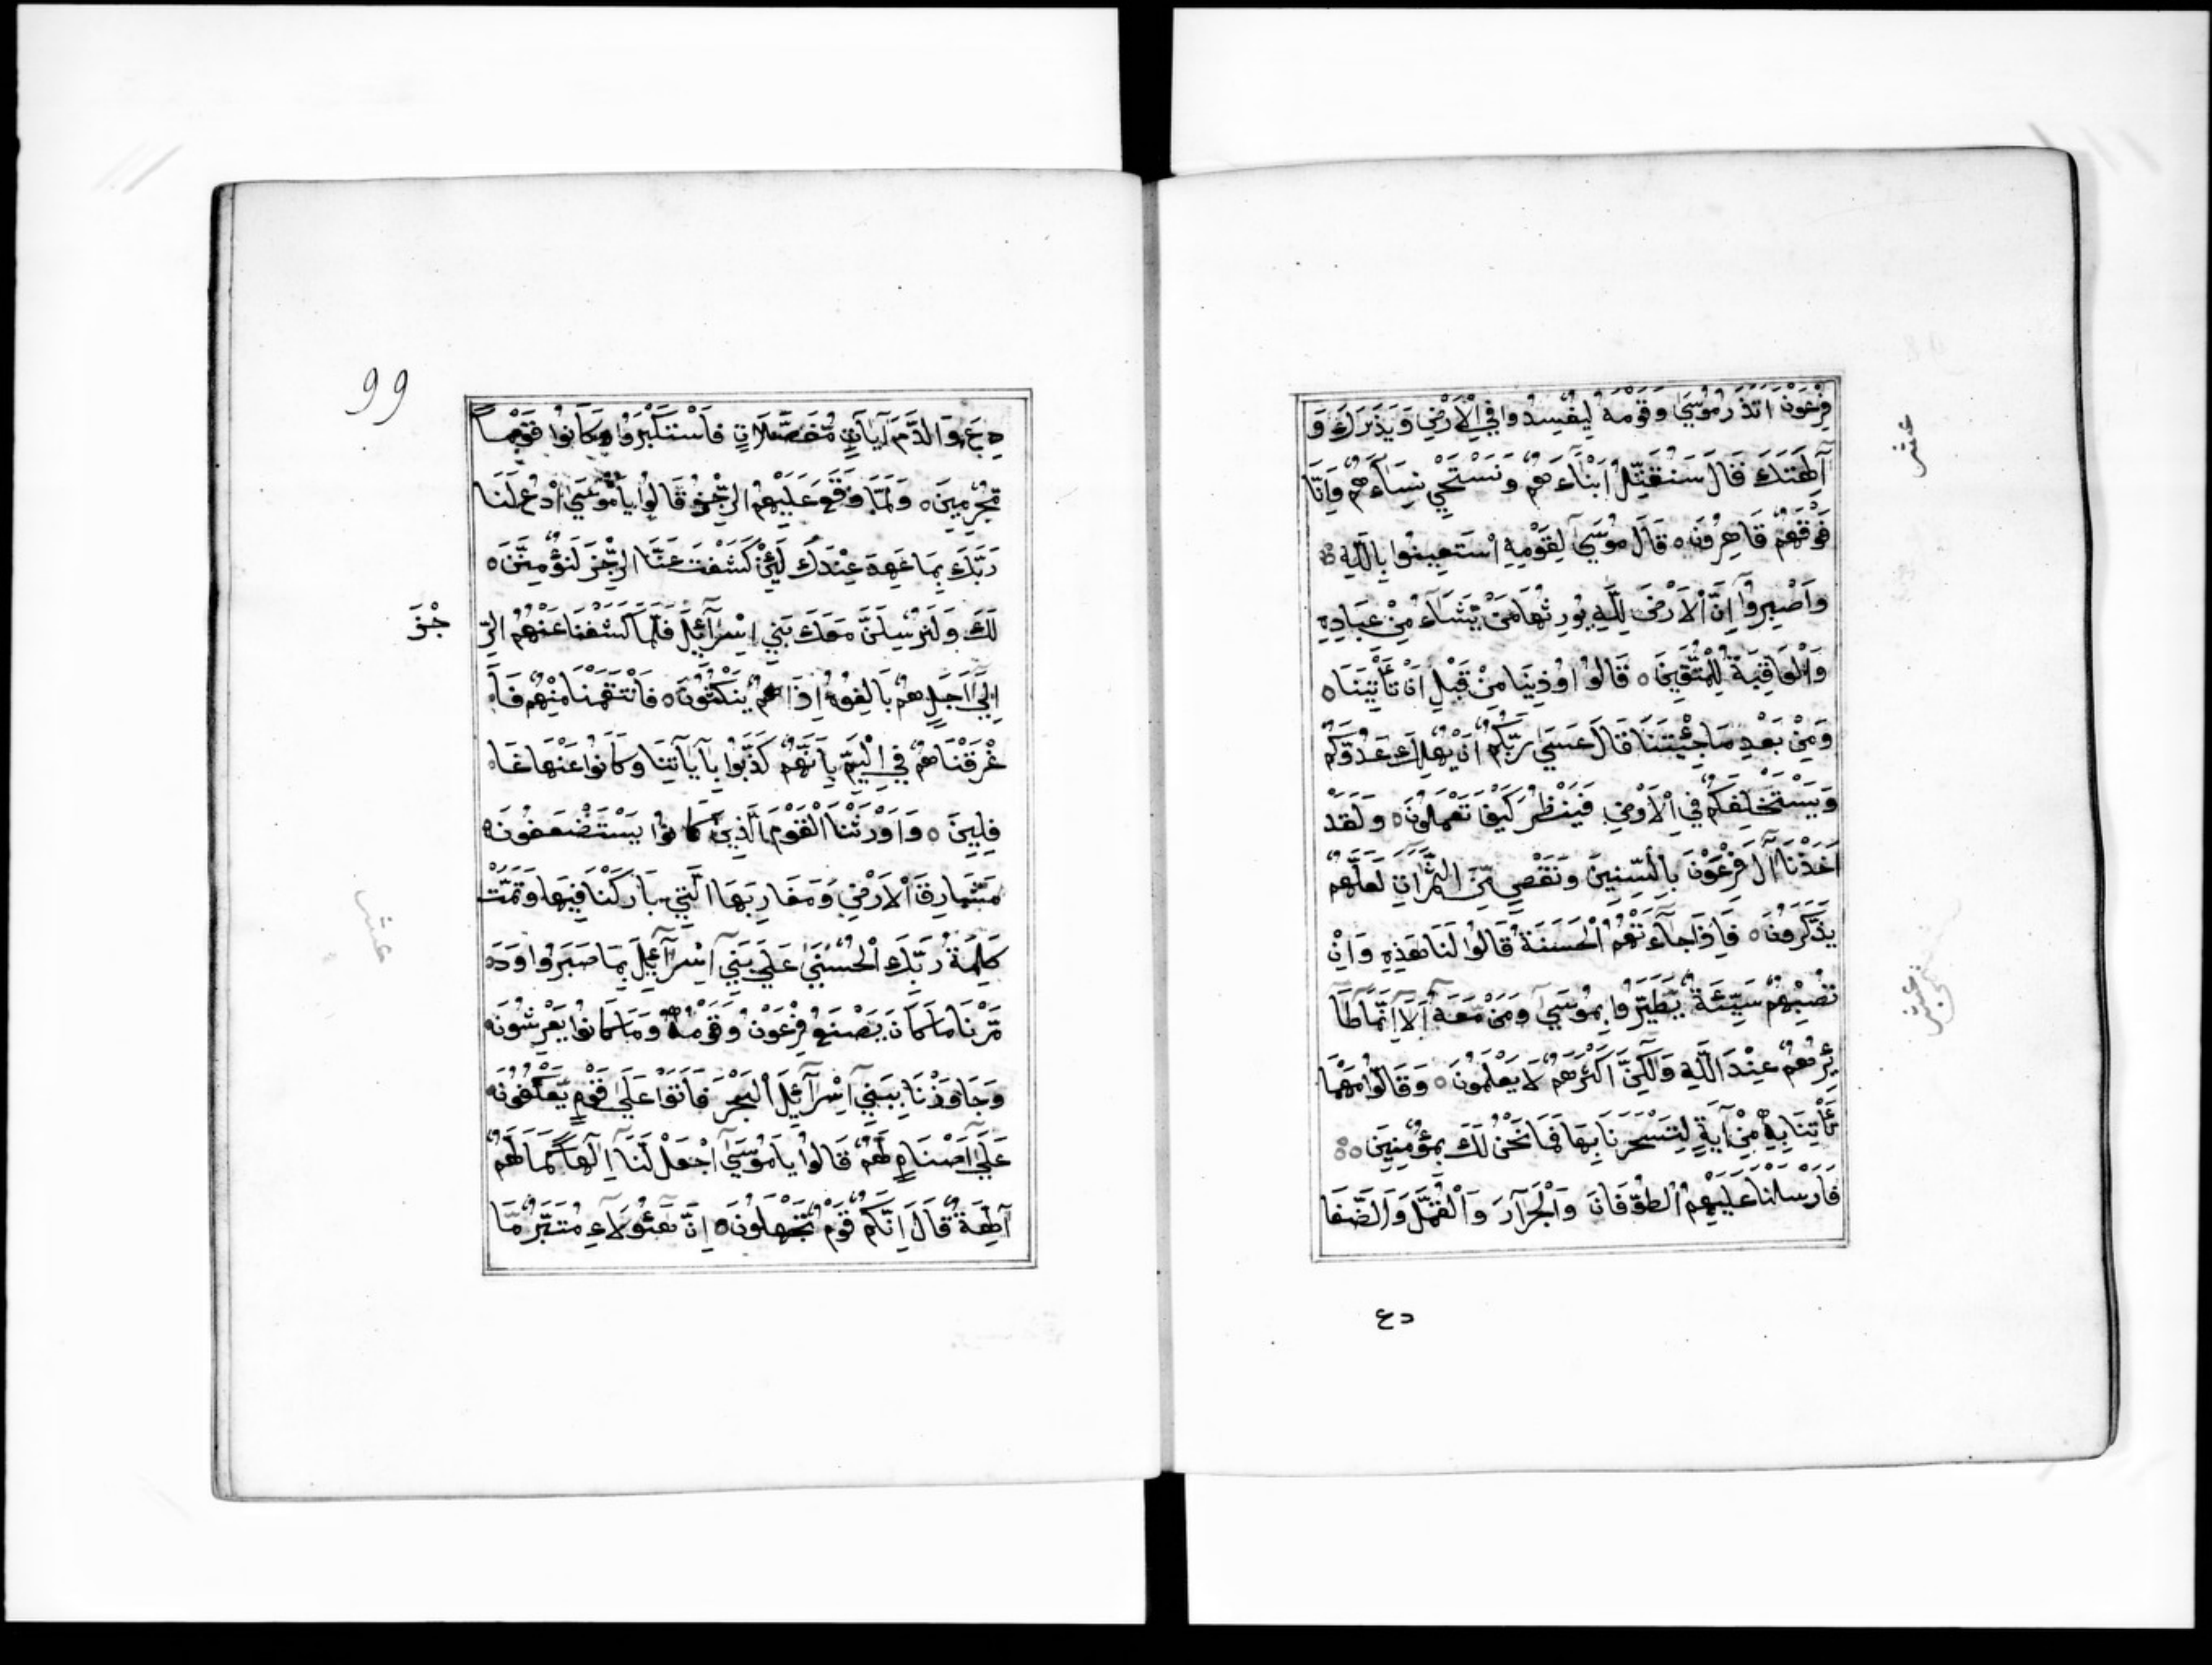 فِرْعَوْنَ اَتَذَرُ مُوسَىٰ وَقَوْمَهُ لِيُفْسِدُوا فِي الْاَرْضِ وَيَذَرَكَ وَ
آلِهَتَكَ قَالَ سَنُقَتِّلُ اَبْنَآءَهُمْ وَنَسْتَحْيِ نِسَآءَهُمْ وَاِنَّا
فَوْقَهُمْ قَاهِرُونَ ه قَالَ مُوسَىٰ لِقَوْمِهِ اسْتَعِينُوا بِاللَّهِ
وَاصْبِرُوآ اِنَّ الْاَرْضَ لِلَّهِ يُورِثُهَا مَنْ يَشَآءُ مِنْ عِبَادِهِ
وَالْعَاقِبَةُ لِلْمُتَّقِينَ ه قَالُوا اُوذِينَا مِنْ قَبْلِ اَنْ تَأْتِيَنَا ه
وَمِنْ بَعْدِ مَا جِئْتَنَا قَالَ عَسَىٰ رَبُّكُمْ اَنْ يُهْلِكَ عَدُوَّكُمْ
وَيَسْتَخْلِفَكُمْ فِي الْاَرْضِ فَيَنْظُرَ كَيْفَ تَعْمَلُونَ ه وَلَقَدْ
اَخَذْنَا آلَ فِرْعَوْنَ بِالسِّنِينَ وَنَقْصٍ مِّنَ الثَّمَرَاتِ لَعَلَّهُمْ
يَذَّكَّرُونَ ه فَاِذَا جَآءَتْهُمُ الْحَسَنَةُ قَالُوا لَنَا هَذِهِ وَاِنْ
تُصِبْهُمْ سَيِّئَةٌ يَّطَّيَّرُوا بِمُوسَىٰ وَمَنْ مَّعَهُ اَلَآ اِنَّمَا طَآ
ئِرُهُمْ عِنْدَ اللَّهِ وَلَكِنَّ اَكْثَرَهُمْ لَا يَعْلَمُونَ ه وَقَالُوا مَهْمَا
تَأْتِنَا بِهِ مِنْ آيَةٍ لِتَسْحَرَنَا بِهَا فَمَا نَحْنُ لَكَ بِمُؤْمِنِينَ ه
فَاَرْسَلْنَا عَلَيْهِمُ الطُّوفَانَ وَالْجَرَادَ وَالْقُمَّلَ وَالضَّفَا
دع
عشر
99
دِعَ وَالدَّمَ آيَاتٍ مُّفَصَّلَاتٍ فَاسْتَكْبَرُوا وَكَانُوا قَوْمًا
مُّجْرِمِينَ ه وَلَمَّا وَقَعَ عَلَيْهِمُ الرِّجْزُ قَالُوا يَا مُوسَىٰ ادْعُ لَنَا
رَبَّكَ بِمَا عَهِدَ عِنْدَكَ لَئِنْ كَشَفْتَ عَنَّا الرِّجْزَ لَنُؤْمِنَنَّ ه
لَكَ وَلَنُرْسِلَنَّ مَعَكَ بَنِي اِسْرَآئِيلَ فَلَمَّا كَشَفْنَا عَنْهُمُ الرِّ
جْزَ
اِلَىٰ اَجَلٍ هُمْ بَالِغُوهُ اِذَا هُمْ يَنْكُثُونَ ه فَانْتَقَمْنَا مِنْهُمْ فَاَ
غْرَقْنَاهُمْ فِي الْيَمِّ بِاَنَّهُمْ كَذَّبُوا بِآيَاتِنَا وَكَانُوا عَنْهَا غَا
فِلِينَ ه وَاَوْرَثْنَا الْقَوْمَ الَّذِينَ كَانُوا يُسْتَضْعَفُونَ
مَشَارِقَ الْاَرْضِ وَمَغَارِبَهَا الَّتِي بَارَكْنَا فِيهَا وَتَمَّتْ
كَلِمَةُ رَبِّكَ الْحُسْنَىٰ عَلَىٰ بَنِيٓ اِسْرَآئِيلَ بِمَا صَبَرُوا وَدَ
مَّرْنَا مَا كَانَ يَصْنَعُ فِرْعَوْنُ وَقَوْمُهُ وَمَا كَانُوا يَعْرِشُونَ
وَجَاوَزْنَا بِبَنِيٓ اِسْرَآئِيلَ الْبَحْرَ فَاَتَوْا عَلَىٰ قَوْمٍ يَّعْكُفُونَ
عَلَىٰٓ اَصْنَامٍ لَّهُمْ قَالُوا يَا مُوسَىٰٓ اجْعَلْ لَّنَآ اِلَهًا كَمَا لَهُمْ
آلِهَةٌ قَالَ اِنَّكُمْ قَوْمٌ تَجْهَلُونَ ه اِنَّ هَٓؤُلَاءِ مُتَبَّرٌ مَّا
عشر